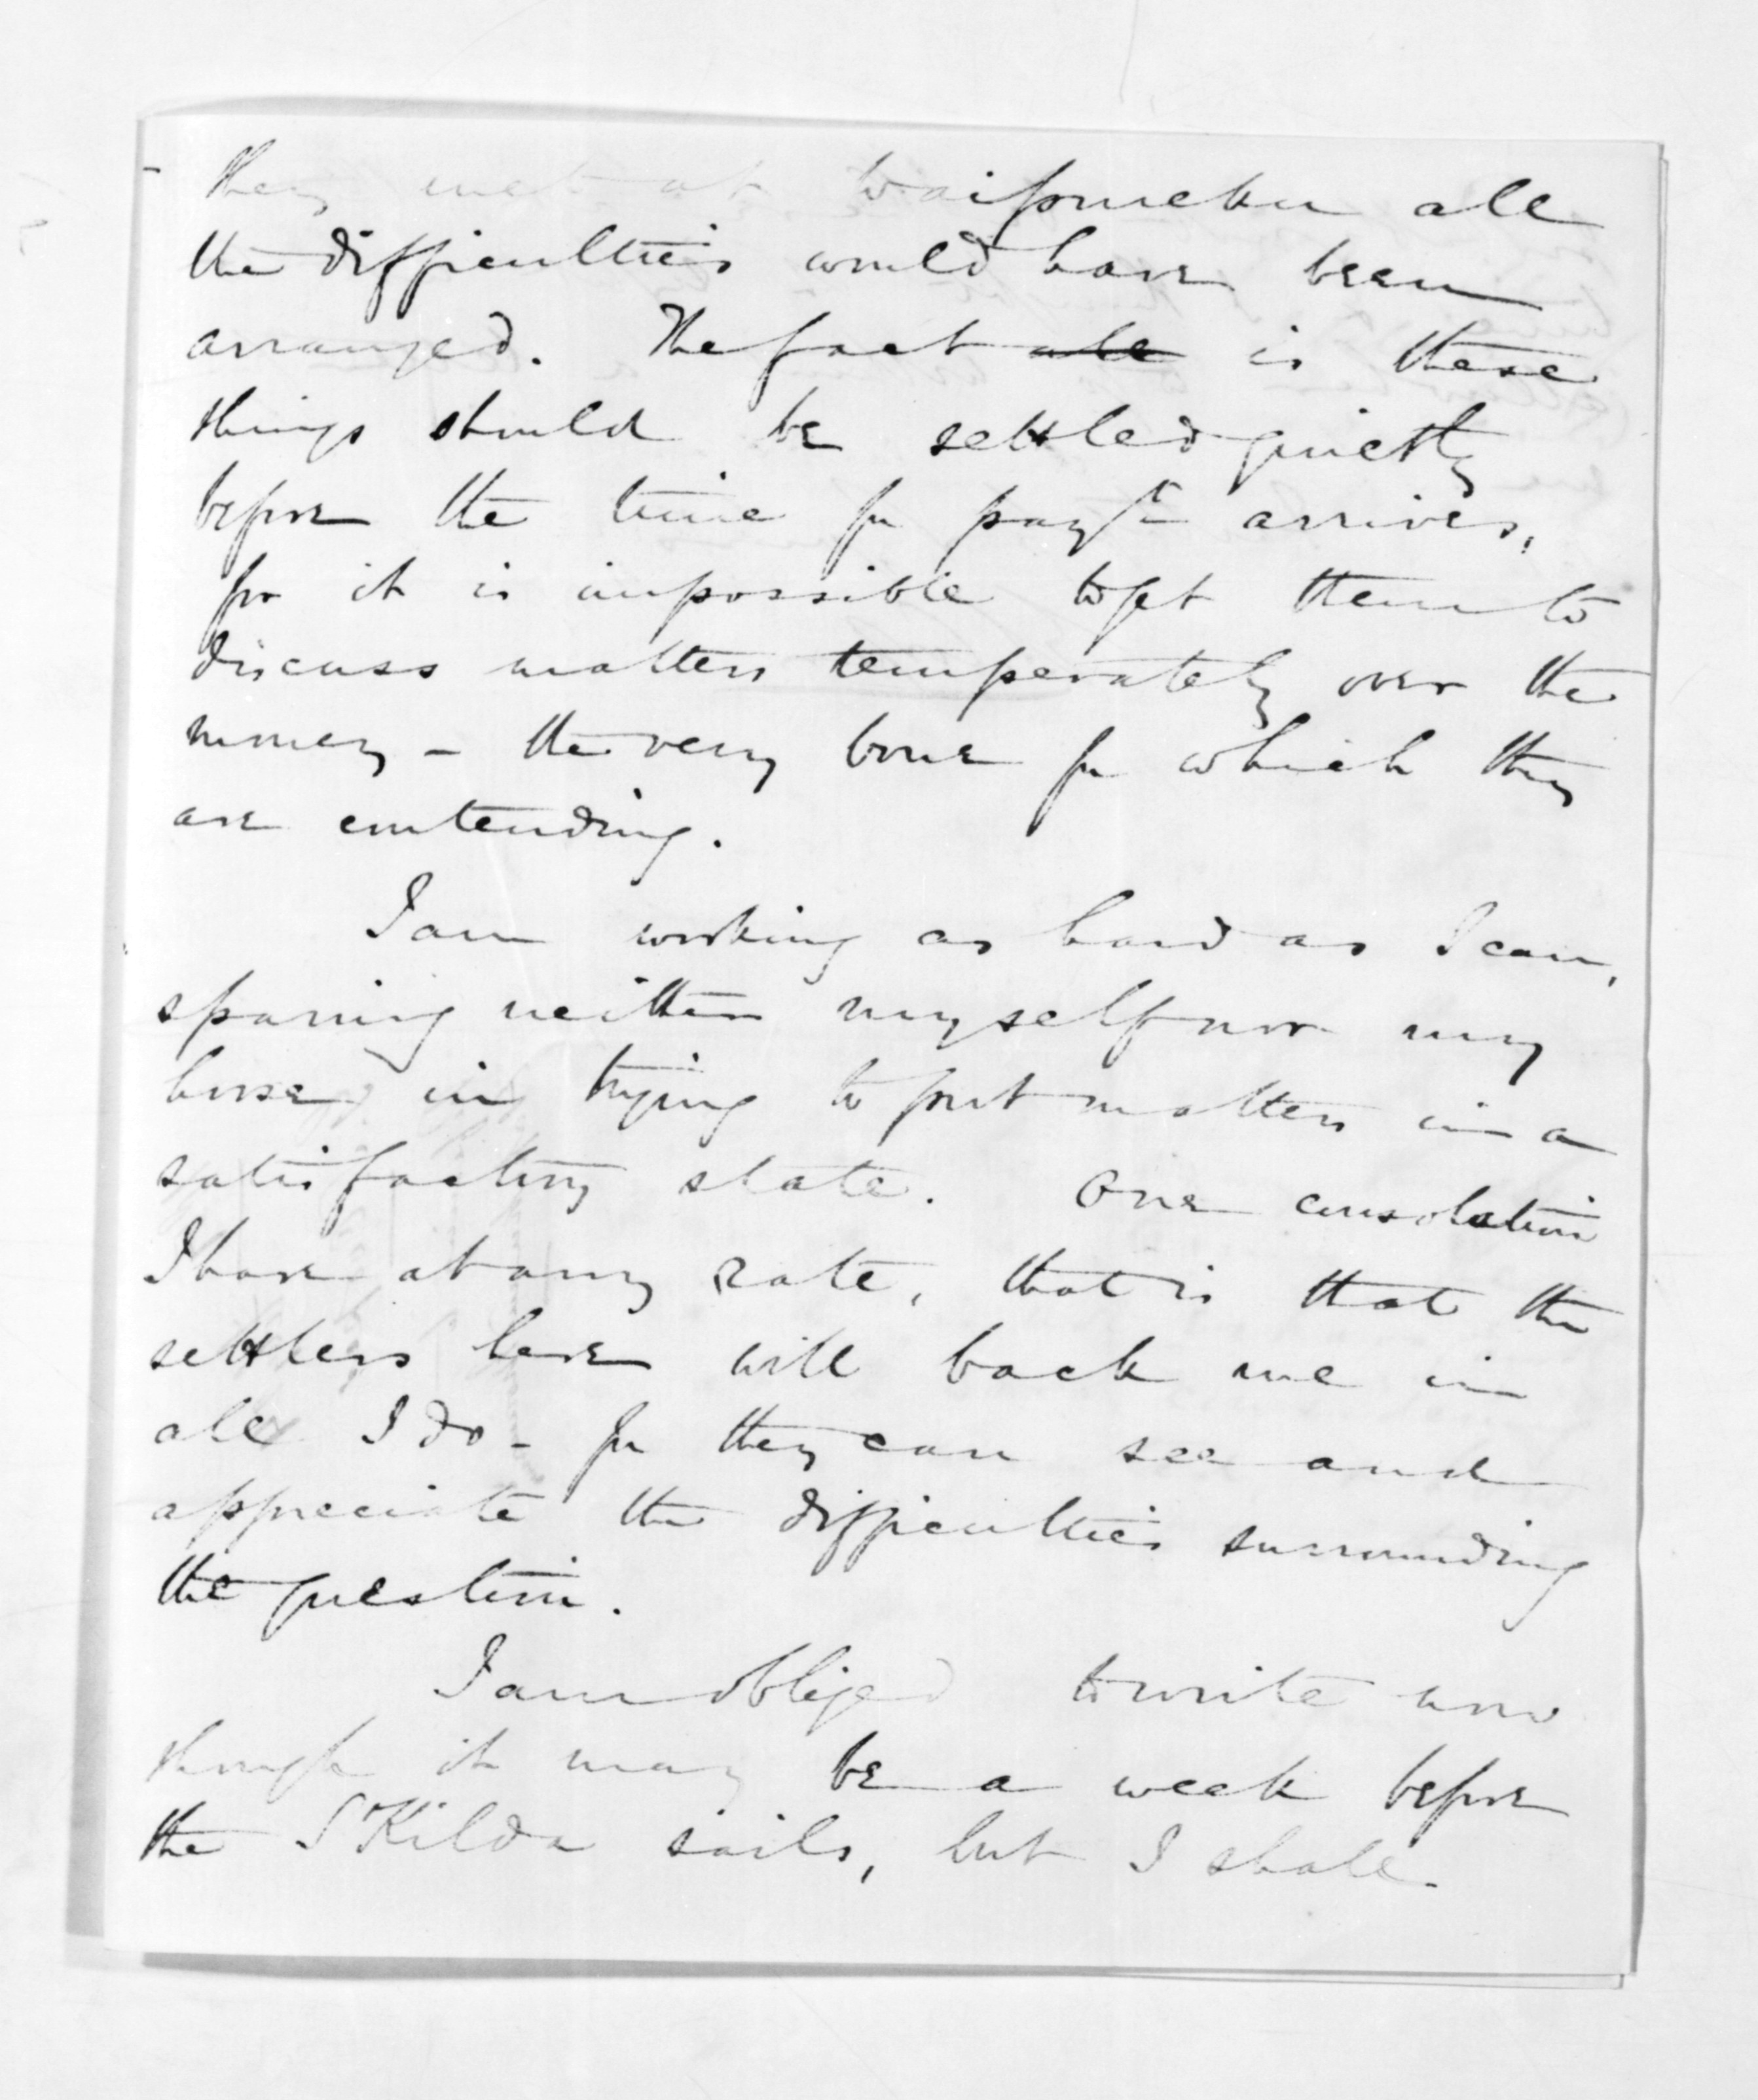 they met at Waipureku all
the difficulties would have been
arranged. The fact all is these
things should be settled quietly
before the time for payt. arrives,
for it is impossible to get them to
discuss matters temperately over the
money - the very bone for which they
are contending.
I am working as hard as I can,
sparing neither myself nor my
horse, in trying to put matters in a
satisfactory state. One consolation
I have at any rate, that is that the
settlers here will back me in
all I do - for they can see and
appreciate the difficulties surrounding
the question.
I am obliged to write now
though it may be a week before
the St Kilda sails, but I shall